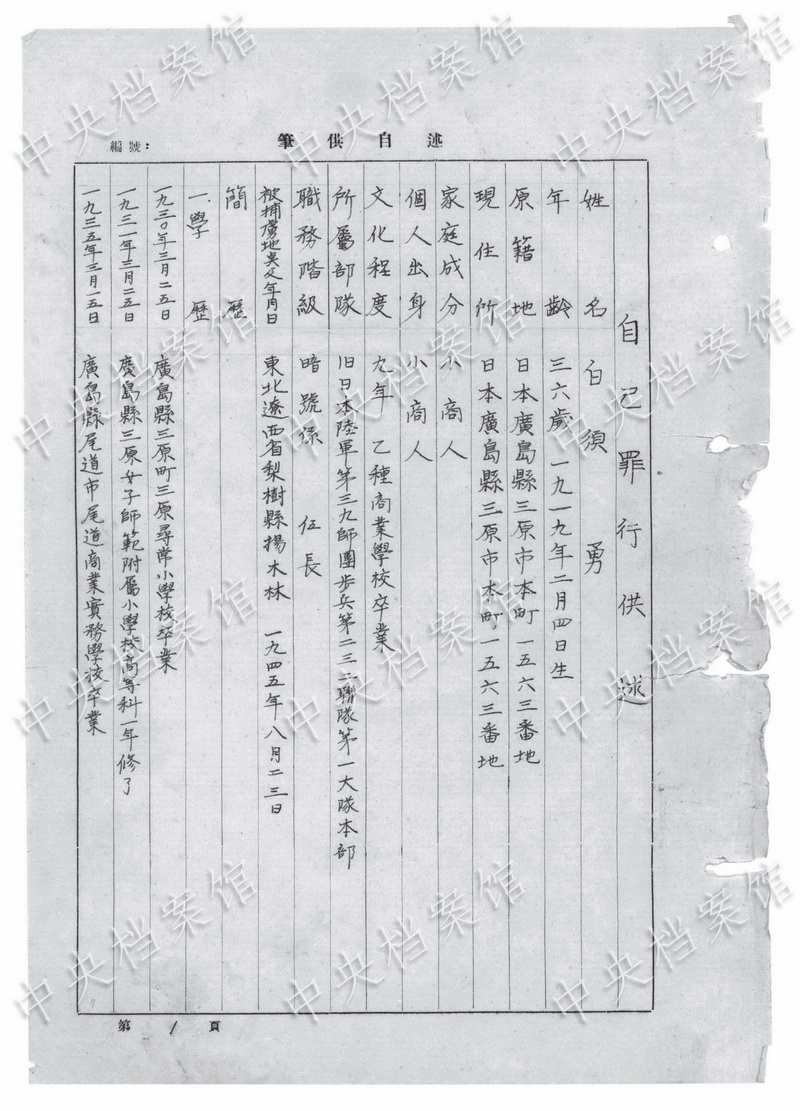 編號：
筆供自述
自己罪行供述
姓名 白須勇
年齡 三六歲 一九一九年二月四日生
原籍地 日本廣島縣三原市本町一五六三番地
現住所 日本廣島縣三原市本町一五六三番地
家庭成分 小商人
個人出身 小商人
文化程度 九年 乙種商業學校卒業
所屬部隊 旧日本陸軍第三九師團步兵第二三二聯隊第一大隊本部
職務階級 暗號係 伍長
被捕虜地点及年月日 東北遼西省梨樹縣揚木林 一九四五年八月二三日
簡歷
一.學歷
一九三〇年三月二五日 廣島縣三原町三原尋常小學校卒業
一九三一年三月二五日 廣島縣三原女子師範附屬小學校高等科一年修了
一九三五年三月一五日 廣島縣尾道市尾道商業實務學校卒業
第1頁
中央档案馆
中央档案馆
中央档案馆
中央档案馆
中央档案馆
中央档案馆
中央档案馆
中央档案馆
中央档案馆
中央档案馆
中央档案馆
中央档案馆